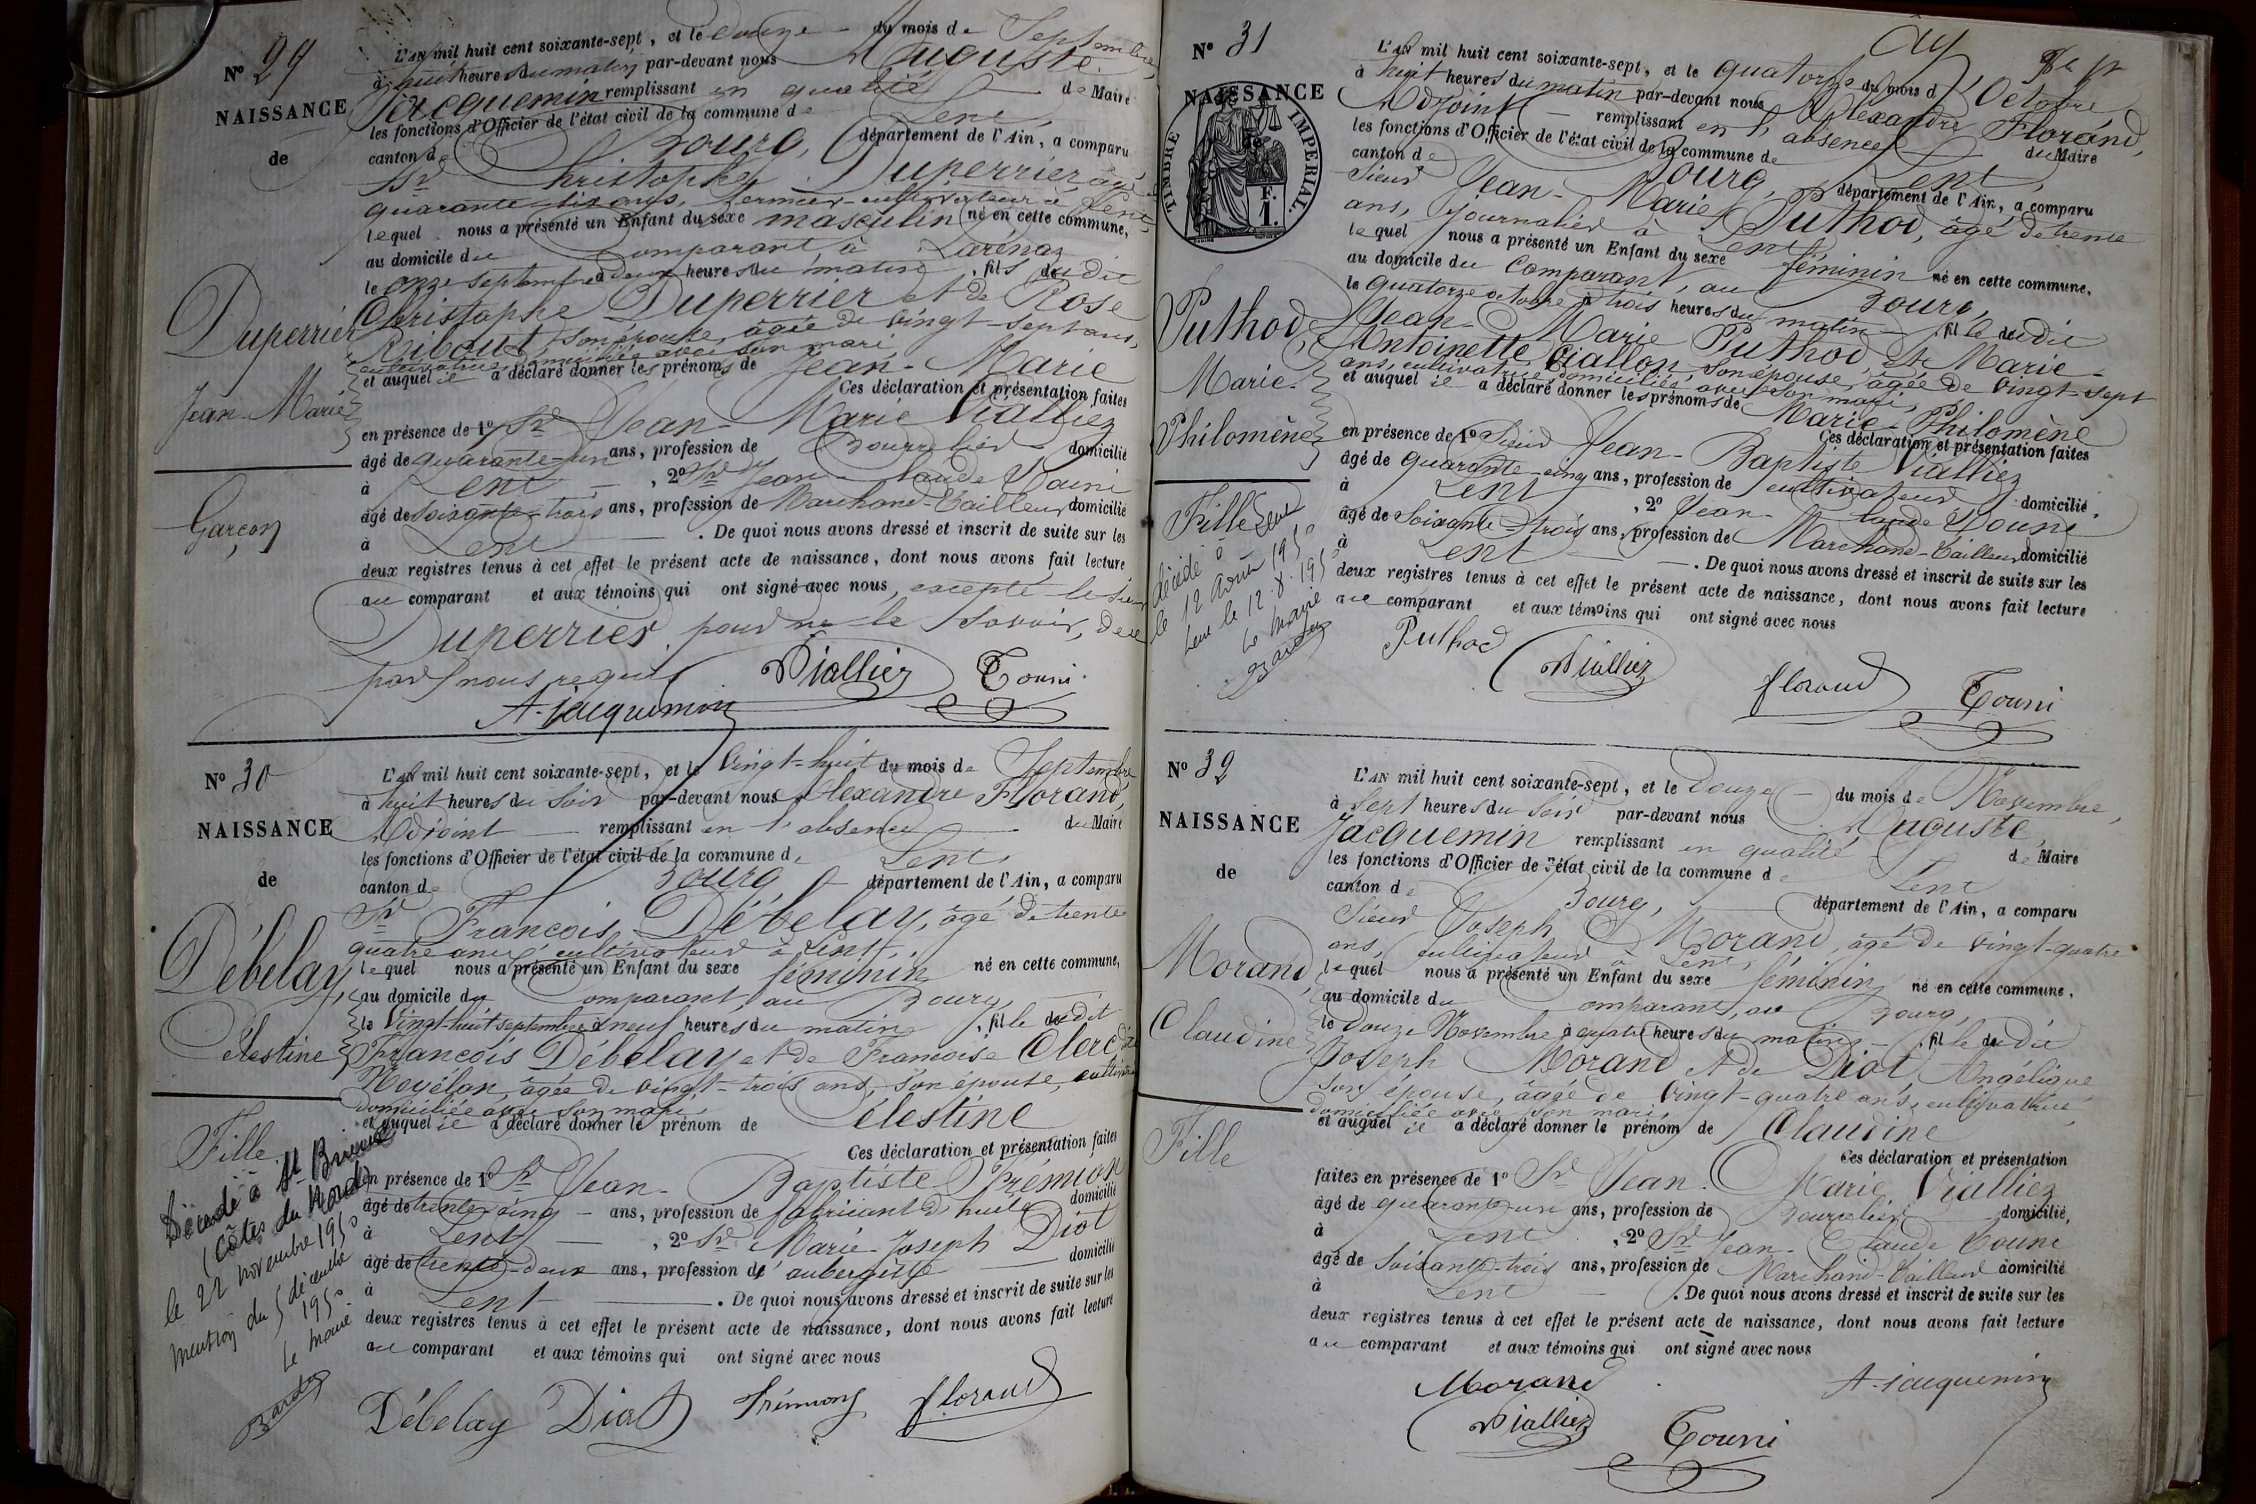 N° 29
NAISSANCE
de
Duperrier
Jean-Marie
Garçon
L'AN mil huit cent soixante-sept, et le douze du mois de Septembre,
à huit heures du matin par-devant nous Auguste
Jacquemin remplissant en qualité de Maire
les fonctions d'Officier de l'état civil de la commune de Lent,
canton de Bourg, département de l'Ain, a comparu
Sr Christophe Duperrier âgé de
quarante ans, fermier-cultivateur à Lent,
lequel nous a présenté un Enfant du sexe masculin né en cette commune,
au domicile du comparant, à Larénaz
le onze septembre à deux heures du matin, fils dudit
Christophe Duperrier et de Rose
Ribout, son épouse, âgée de vingt-sept ans,
cultivatrice domiciliée avec son mari
et auquel il a déclaré donner les prénoms de Jean-Marie
Ces déclaration et présentation faites
en présence de 1° Sr Jean-Marie Vialliez
âgé de quarante-un ans, profession de Bourrelier domicilié
à Lent, 2° Sr Jean-Claude Touni
âgé de soixante-trois ans, profession de Marchand-Tailleur domicilié
à Lent. De quoi nous avons dressé et inscrit de suite sur les
deux registres tenus à cet effet le présent acte de naissance, dont nous avons fait lecture
au comparant et aux témoins qui ont signé avec nous, excepté le Sieur
Duperrier, pour ne le savoir, de ce
par nous requis
Vialliez Touni
A. Jacquemin
N° 30
NAISSANCE
de
Débelay,
Célestine
Fille
Décédé à St Brieuc
(Côtes du Nord)
le 22 novembre 1950
mention du 5 décembre
1950
Le Maire
L'AN mil huit cent soixante-sept, et le vingt-huit du mois de Septembre
à huit heures du soir par-devant nous Alexandre Florand,
Adjoint remplissant en l'absence du Maire
les fonctions d'Officier de l'état civil de la commune de Lent,
canton de Bourg, département de l'Ain, a comparu
Sr François Débelay, âgé de trente
quatre ans, cultivateur à Lent,
lequel nous a présenté un Enfant du sexe féminin né en cette commune,
au domicile du Comparant, au Bourg,
le vingt-huit septembre à neuf heures du matin, fille dudit
François Débelay et de Françoise Clerc dit
Noyélan, âgée de vingt-trois ans, son épouse, cultivatrice
domiciliée avec son mari,
et auquel il a déclaré donner le prénom de Célestine
Ces déclaration et présentation faites
en présence de 1° Sr Jean-Baptiste Prémion
âgé de trente-cinq ans, profession de fabricant d'huile domicilié
à Lent, 2° Sr Marie-Joseph Diot
âgé de trente-deux ans, profession d'aubergiste domicilié
à Lent. De quoi nous avons dressé et inscrit de suite sur les
deux registres tenus à cet effet le présent acte de naissance, dont nous avons fait lecture
au comparant et aux témoins qui ont signé avec nous
Débelay Diot Prémion Florand
N° 31
NAISSANCE
TIMBRE IMPERIAL.
F.
1.
Puthod,
Marie-
Philomène
Fille
décédé à Lent
le 12 Août 1950
Lent le 12.8.1950
Le Maire
L'AN mil huit cent soixante-sept, et le quatorze du mois d'Octobre
à huit heures du matin par-devant nous Alexandre Florand,
Adjoint remplissant en l'absence du Maire
les fonctions d'Officier de l'état civil de la commune de Lent,
canton de Bourg, département de l'Ain, a comparu
Sieur Jean-Marie Puthod, âgé de trente
ans, journalier à Lent,
lequel nous a présenté un Enfant du sexe féminin né en cette commune,
au domicile du Comparant, au Bourg,
le quatorze octobre à trois heures du matin, fille dudit
Jean-Marie Puthod, et de Marie-
Antoinette Viallon, son épouse, âgée de vingt-sept
ans, cultivatrice, domiciliée avec son mari,
et auquel il a déclaré donner les prénoms de Marie-Philomène
Ces déclaration et présentation faites
en présence de 1° Sieur Jean-Baptiste Vialliez
âgé de quarante-cinq ans, profession de cultivateur domicilié
à Lent, 2° Jean-Claude Touni
âgé de soixante-trois ans, profession de Marchand-Tailleur domicilié
à Lent. De quoi nous avons dressé et inscrit de suite sur les
deux registres tenus à cet effet le présent acte de naissance, dont nous avons fait lecture
au comparant et aux témoins qui ont signé avec nous
Puthod
Vialliez Florand Touni
N° 32
NAISSANCE
de
Morand,
Claudine
Fille
L'AN mil huit cent soixante-sept, et le douze du mois de Novembre,
à sept heures du soir par-devant nous Auguste
Jacquemin remplissant en qualité de Maire
les fonctions d'Officier de l'état civil de la commune de Lent
canton de Bourg, département de l'Ain, a comparu
Sieur Joseph Morand, âgé de vingt-quatre
ans, cultivateur à Lent,
lequel nous a présenté un Enfant du sexe féminin né en cette commune,
au domicile du Comparant, au Bourg,
le douze Novembre à quatre heures du matin, fille dudit
Joseph Morand et de Diot Angélique
son épouse, âgée de vingt-quatre ans, cultivatrice
domiciliée avec son mari,
et auquel il a déclaré donner le prénom de Claudine
Ces déclaration et présentation
faites en présence de 1° Sr Jean-Marie Vialliez
âgé de quarante-un ans, profession de Bourrelier domicilié,
à Lent, 2° Sr Jean-Claude Touni
âgé de soixante-trois ans, profession de Marchand-Tailleur domicilié
à Lent. De quoi nous avons dressé et inscrit de suite sur les
deux registres tenus à cet effet le présent acte de naissance, dont nous avons fait lecture
au comparant et aux témoins qui ont signé avec nous
Morand A. Jacquemin
Vialliez Touni